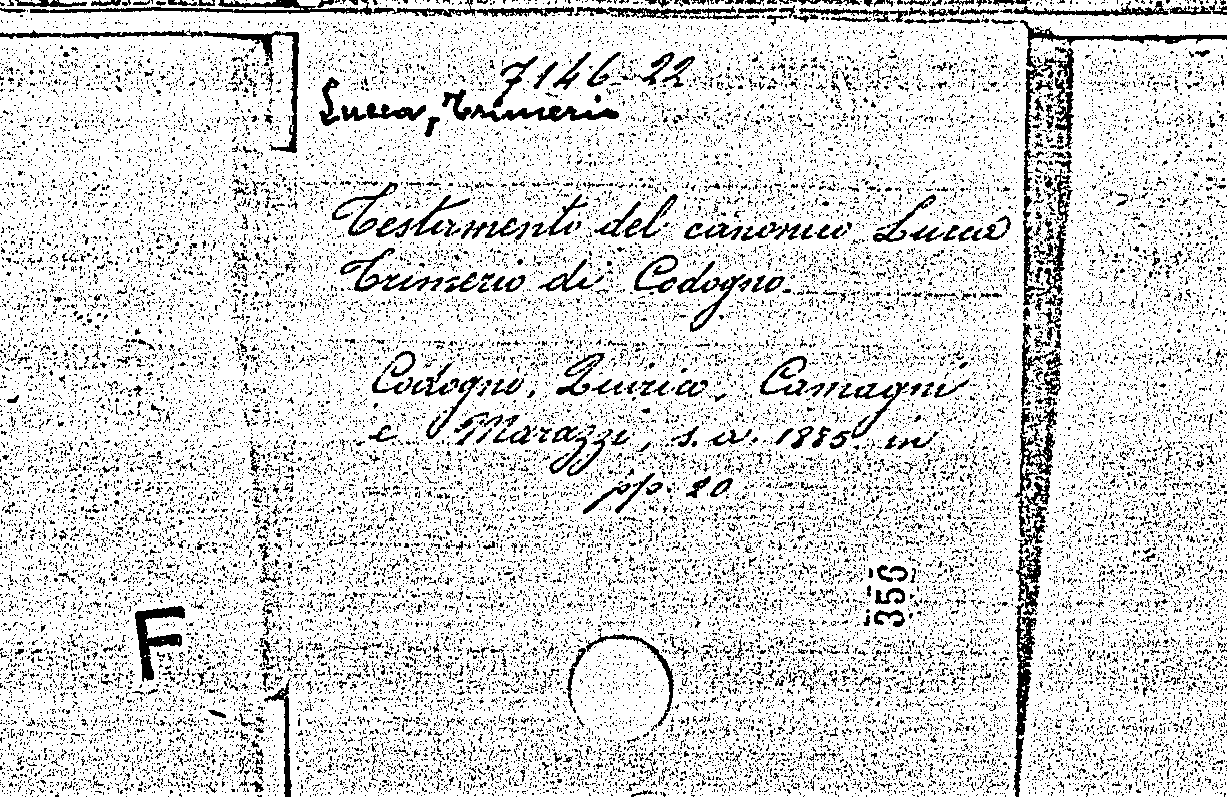 7146-22
Lucca, Trimerio
Testamento del canonico Lucca
Trimerio di Codogno.
Codogno, Quirico, Camagni
e Marazzi, s. a. 1885 in
pp. 20
350
F